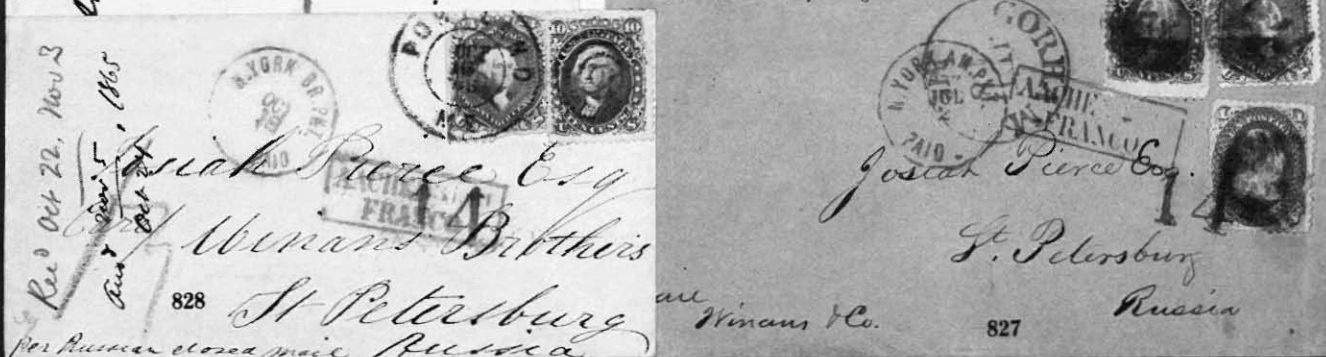 Rec'd Oct 22, Nov 3
1865
Oct 24
PORTLAND
ME
10 10
N.YORK BR. PKT
OCT
PAID
AACHEN
FRANCO
14
Josiah Pierce Esq
Winans Brothers
St Petersburg
Russia
Per Prussian closed mail
828
GORHAM
N.YORK AM. PKT
JUL
PAID
AACHEN
FRANCO
14
Josiah Pierce Esq.
St. Petersburg
Russia
care
Winans & Co.
827